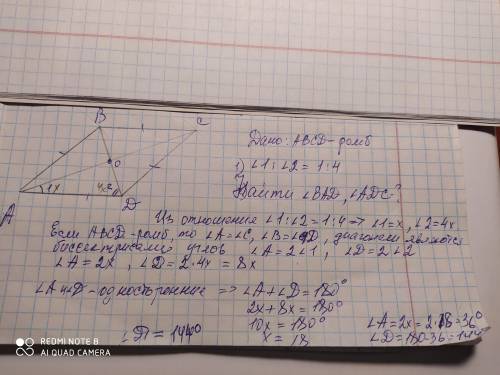 B
C
O
1x
4x
A
D
Дано: ABCD-ромб
1) ∠1:∠2=1:4
Найти ∠BAD, ∠ADC?
Из отношения ∠1:∠2=1:4 => ∠1=x, ∠2=4x
Если ABCD-ромб, то ∠A=∠C, ∠B=∠D, диагонали являются
биссектрисами углов ∠A=2∠1, ∠D=2∠2
∠A=2x, ∠D=2·4x=8x
∠A и ∠D-односторонние => ∠A+∠D=180°
2x+8x=180°
10x=180°
x=18
∠A=2x=2·18=36°
∠D=180-36=144°
∠D=144°
REDMI NOTE 8
AI QUAD CAMERA